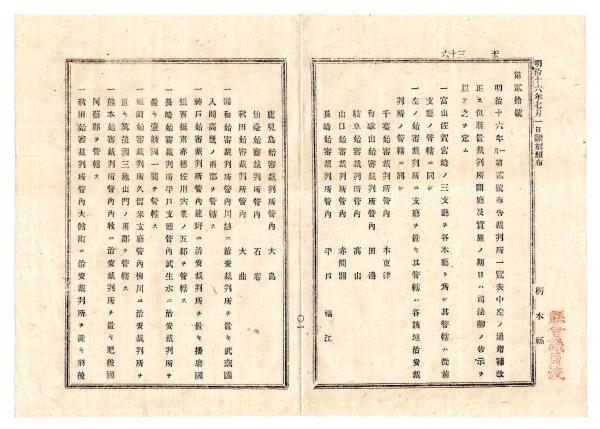 明治十六年七月一日翻刻頒布
栃木縣
五 三十六
第貳拾號
明治十六年一月第貳號布告裁判所一覽表中左ノ通增補改
正ス但新置裁判所開廳及實施ノ期日ハ司法卿ノ告示ヲ
以テ之ヲ定ム
一富山佐賀宮崎ノ三支廳ヲ各本廳ト爲シ其管轄ハ從前
支廳ノ管轄ニ同シ
一左ノ始審裁判所ニ支廳ヲ置キ其管轄ハ各該地治安裁
判所ノ管轄ニ同シ
千葉始審裁判所管內 木更津
和歌山始審裁判所管內 田邊
岐阜始審裁判所管內 高山
山口始審裁判所管內 赤間關
長崎始審裁判所管內 平戶 福江
〇一
鹿兒島始審裁判所管內 大島
仙臺始審裁判所管內 石卷
秋田始審裁判所管內 大曲
一浦和始審裁判所管內川越ニ治安裁判所ヲ置キ武藏國
入間高麗ノ兩郡ヲ管轄ス
一神戶始審裁判所管內龍野ニ治安裁判所ヲ置キ播磨國
揖西揖東赤穗佐用宍粟ノ五郡ヲ管轄ス
一長崎始審裁判所平戶支廳管內武生水ニ治安裁判所ヲ
置キ壹岐國一圓ヲ管轄ス
一福岡始審裁判所久留米支廳管內柳川ニ治安裁判所ヲ
置キ筑後國三池山門ノ兩郡ヲ管轄ス
一熊本始審裁判所管內內牧ニ治安裁判所ヲ置キ肥後國
阿蘇郡ヲ管轄ス
一秋田始審裁判所管內大館町ニ治安裁判所ヲ置キ羽後